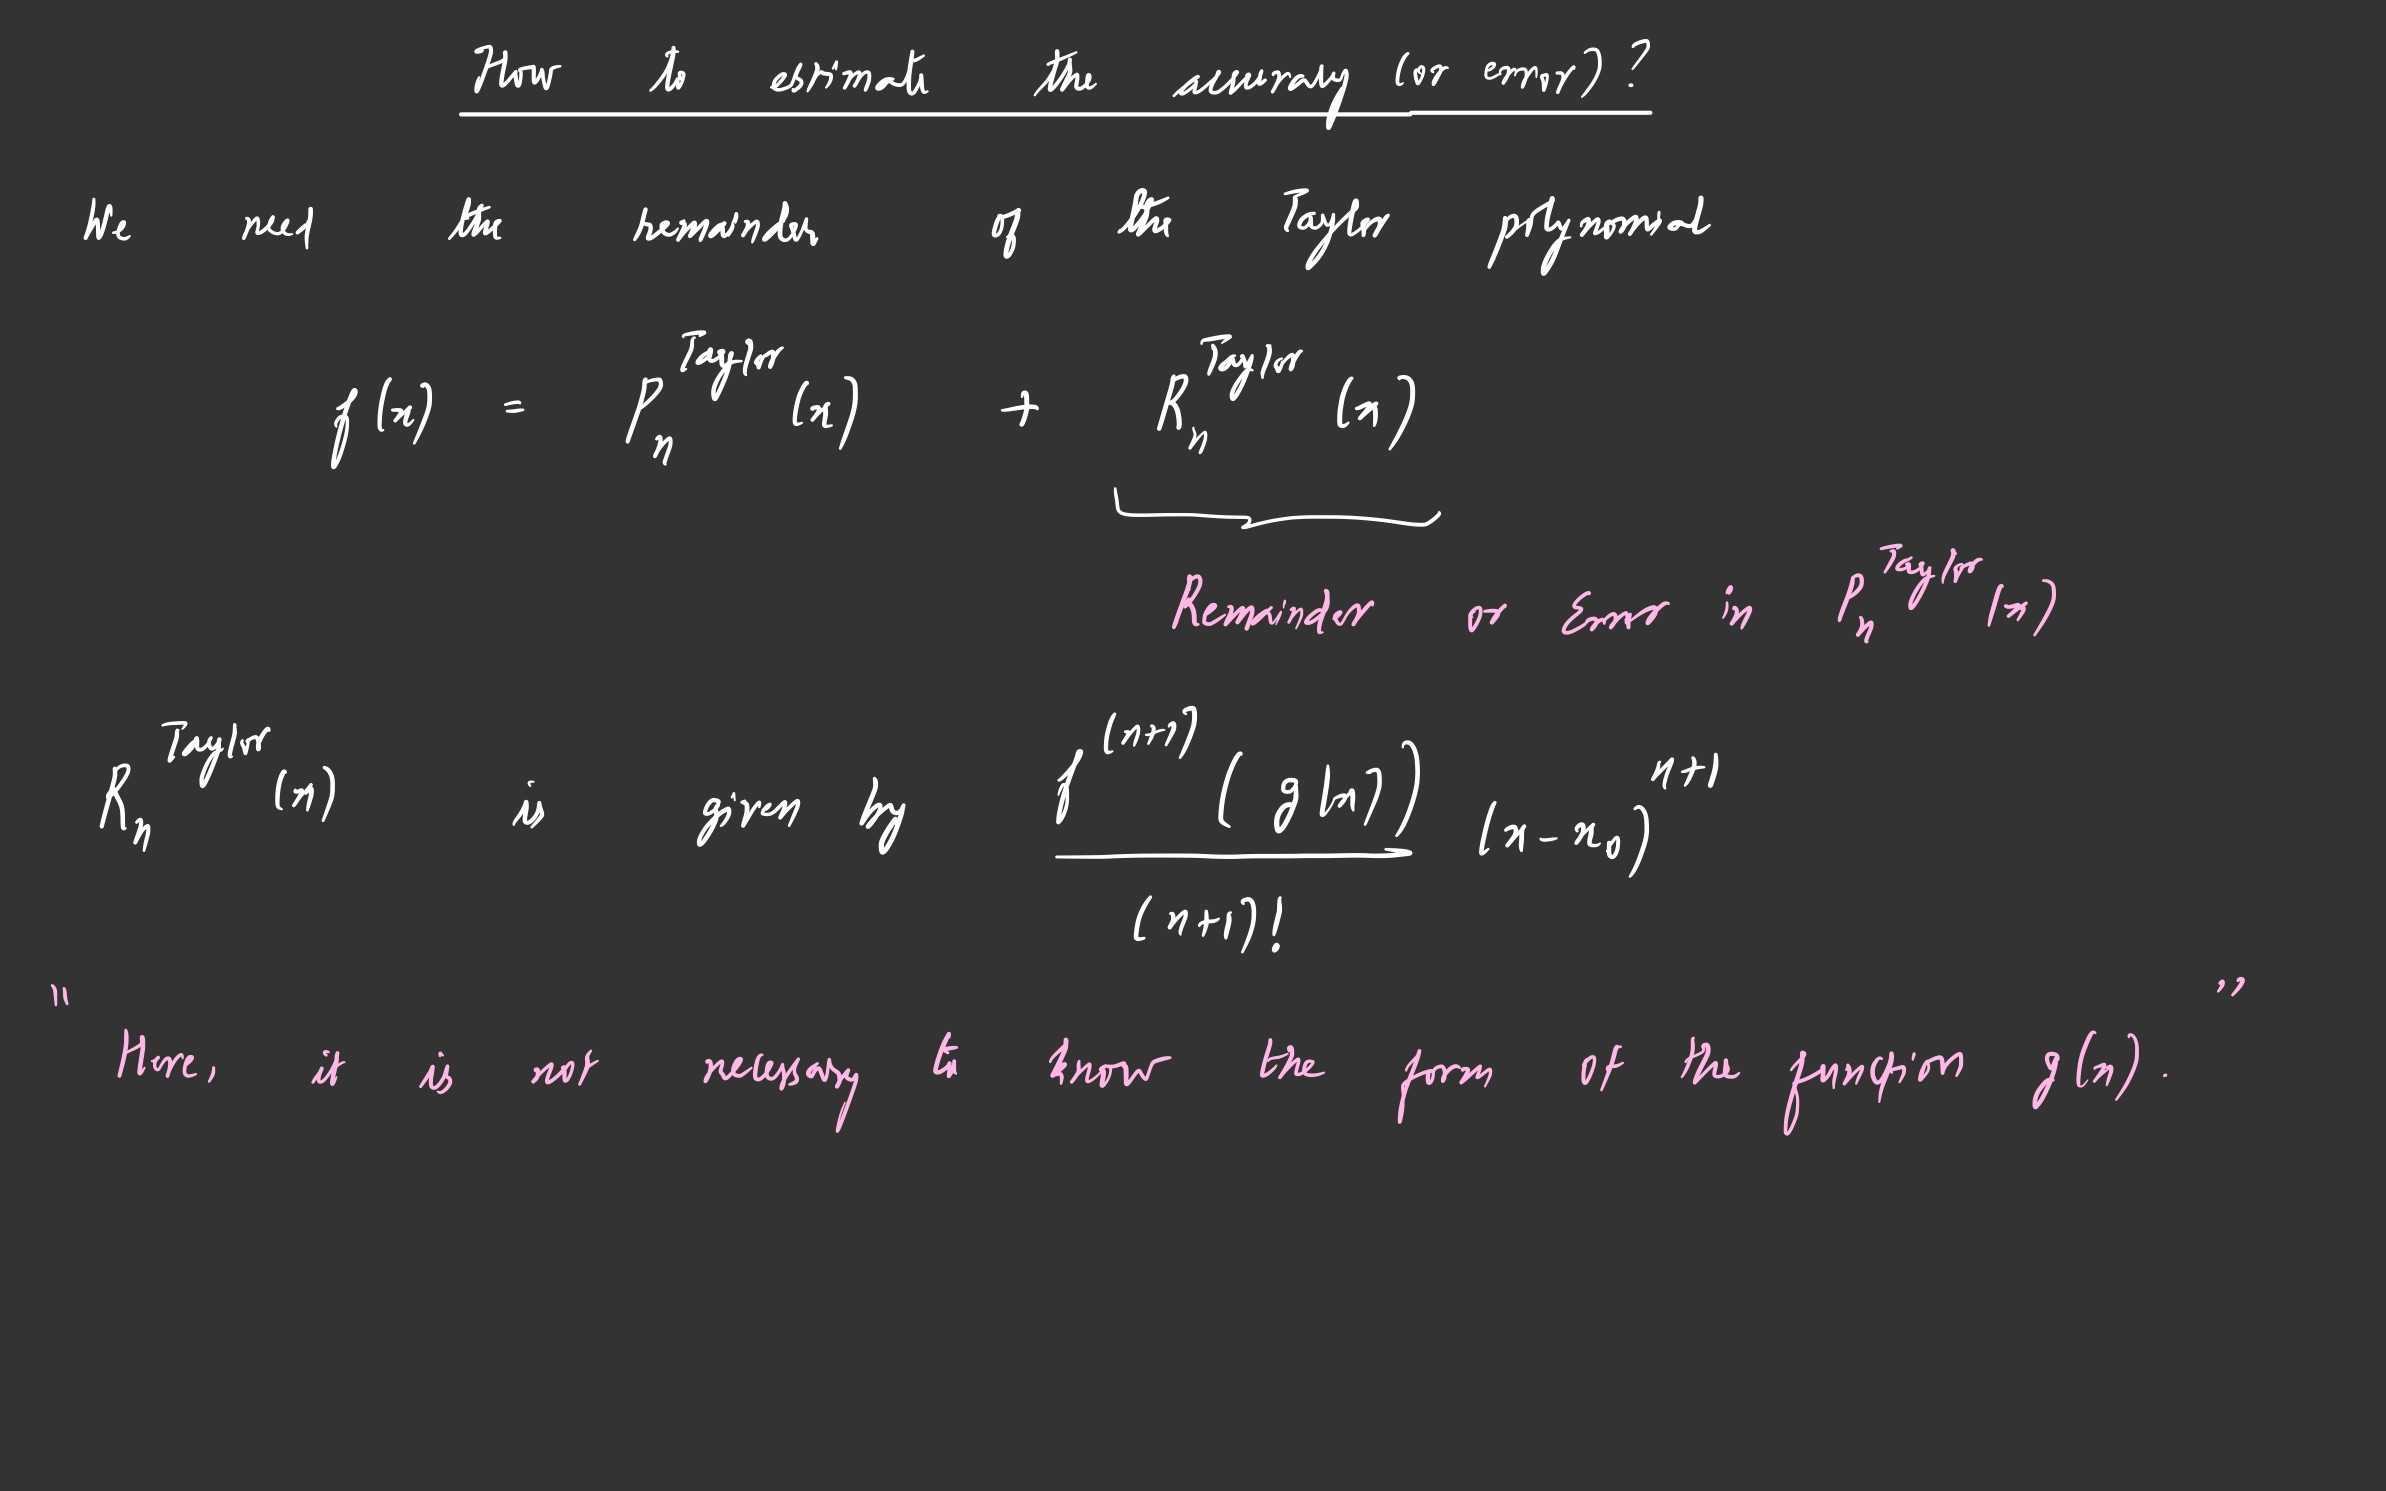 How to estimate the accuracy (or error)?
We need the remainder of the Taylor polynomial
f(x) = P_n^Taylor (x) + R_n^Taylor (x)
Remainder or Error in P_n^Taylor (x)
R_n^Taylor (x) is given by f^(n+1) (g(x)) / (n+1)! (x - x_0)^n+1
" Here, it is not necessary to know the form of the function g(x). "